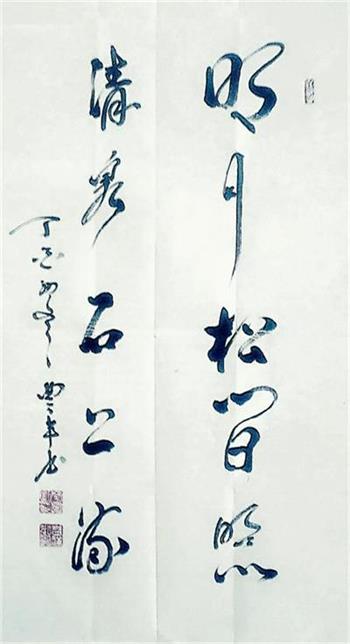 明月松間照
清泉石上流
丁酉初冬豐年书